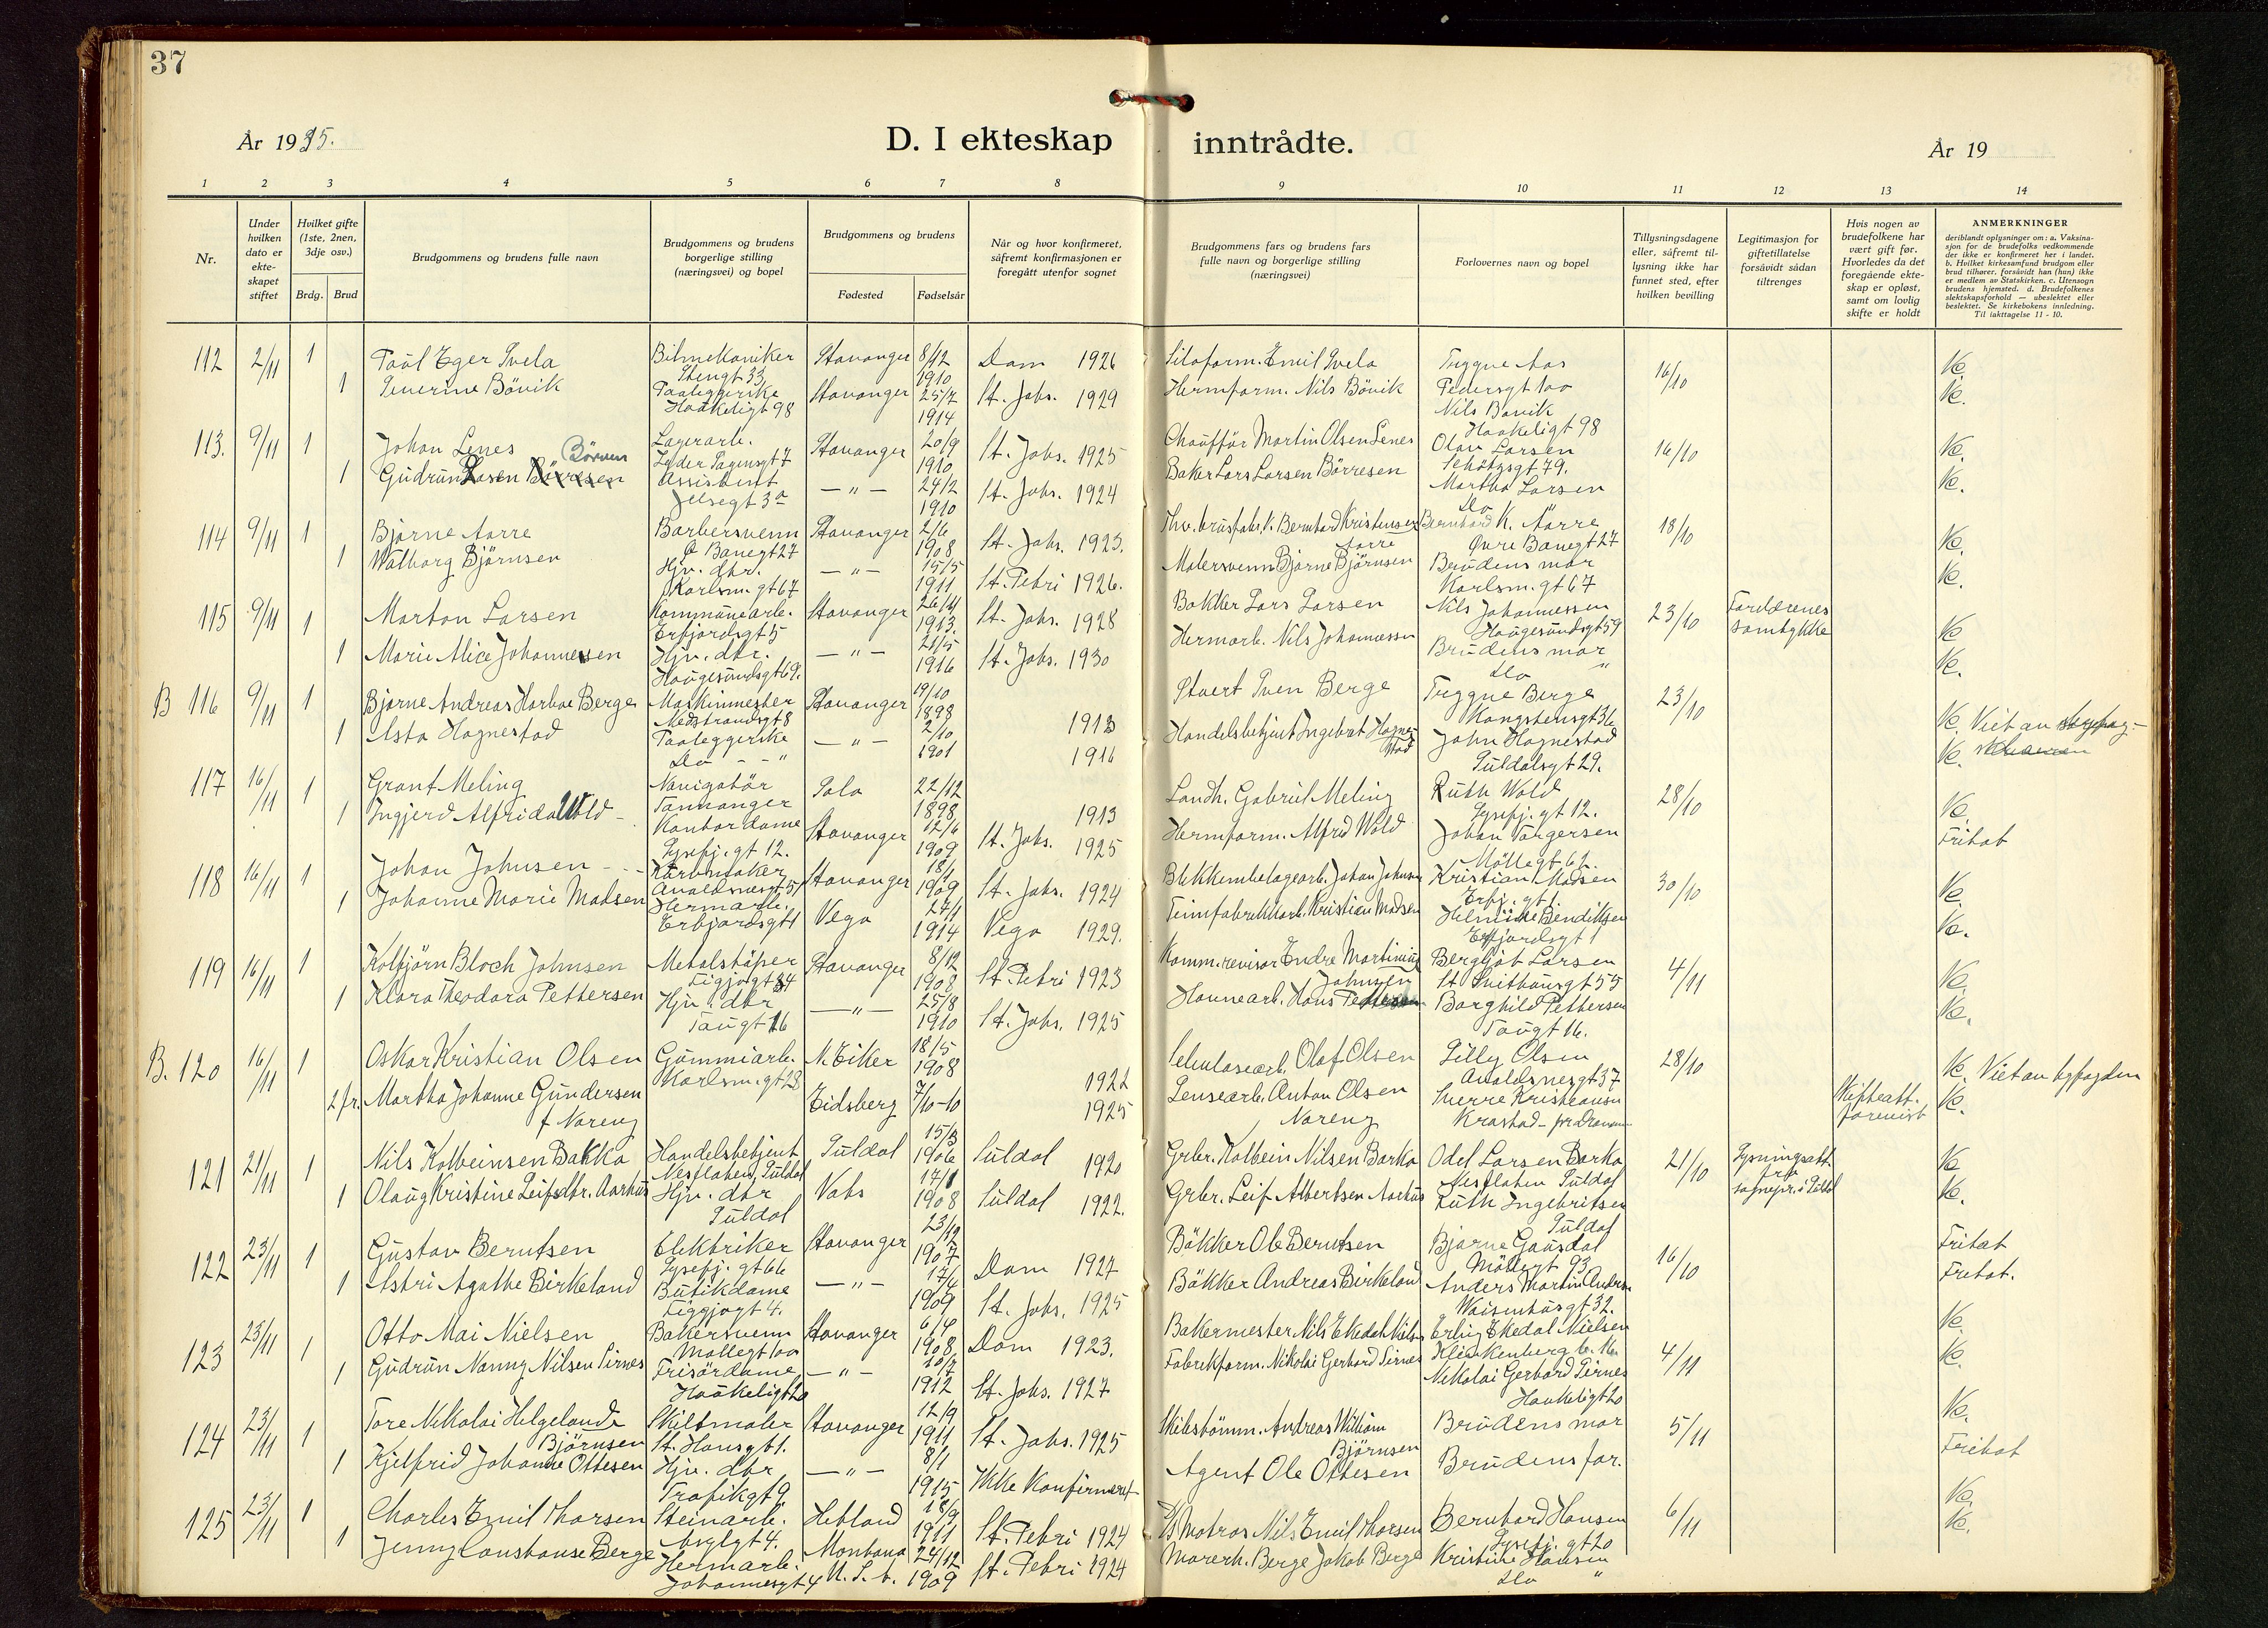 37
År 1935.
D. I ekteskap inntrådte.
År 19
1 2 3 4 5 6 7 8 9 10 11 12 13 14
Nr.
Under hvilken dato er ekte-skapet stiftet
Hvilket gifte (1ste, 2nen, 3dje osv.)
Brdg. Brud
Brudgommens og brudens fulle navn
Brudgommens og brudens borgerlige stilling (næringsvei) og bopel
Brudgommens og brudens
Fødested Fødselsår
Når og hvor konfirmeret, såfremt konfirmasjonen er foregått utenfor sognet
Brudgommens fars og brudens fars fulle navn og borgerlige stilling (næringsvei)
Forlovernes navn og bopel
Tillysningsdagene eller, såfremt til-lysning ikke har funnet sted, efter hvilken bevilling
Legitimasjon for giftetillatelse forsåvidt sådan tiltrenges
Hvis nogen av brudefolkene har vært gift før. Hvorledes da det foregående ekte-skap er opløst, samt om lovlig skifte er holdt
ANMERKNINGER
deriblandt oplysninger om: a. Vaksina-sjon for de brudefolks vedkommende der ikke er konfirmeret her i landet. b. Hvilket kirkesamfund brudgom eller brud tilhører, forsåvidt han (hun) ikke er medlem av Statskirken. c. Utensogn brudens hjemsted. d. Brudefolkenes slektskapsforhold — ubeslektet eller beslektet. Se kirkebokens innledning. Til iakttagelse 11 - 10.
112 2/11 1 Bilmekaniker Stavanger 8/12 1910 Dom 1926 Emil Svela Tryggve Aas Pedersgt 100 16/10 Va.
1 Severine Bövik Haakeligt 98 Stavanger 25/7 1914 St. Johs. 1929 Hermform. Nils Bövik Nils Bövik Haakeligt 98 Va.
113. 9/11 1 Johan Lenes Lagerarb. Stavanger 20/9 1910 St. Johs. 1925 Chaufför Martin Olsen Lenes Olav Larsen 16/10 Va.
1 Gudrun Börresen Assistent Jelsegt 3a — " — 24/2 1910 St. Johs. 1924 Baker Lars Larsen Börresen Martha Larsen Do " Va.
114 9/11 1 Bjarne Aarre Barbersvenn Ö Banegt 27 Stavanger 2/6 1908 St. Johs. 1923. Bernhard Kristensen Aarre Bernhard K. Aarre Övre Banegt 27 18/10 Va.
1 Walborg Björnsen Hjv. dtr. Karlsm. gt 67 — " — 15/5 1911 St. Petri 1926. Malersvenn Bjarne Björnsen Brudens mor Karlsm. gt 67 Va.
115 9/11 1 Morton Larsen Kommunearb. Erfjordsgt 5 Stavanger 1913. St. Johs. 1928 Bakker Lars Larsen Nils Johannessen Haugesundsgt 59 23/10 samtykke Va.
1 Marie Alice Johannessen Hjv. dtr. Haugesundsgt 69. — " — 21/5 1916 St. Johs. 1930 Hermarb. Nils Johannessen Brudens mor do " Va.
B 116 9/11 1 Bjarne Andreas Berge Maskinmester Nedstrandsgt 8 Stavanger 19/10 1898 1913 Stuert Sven Berge Tryggve Berge Kongstensgt 36 23/10 Va. Viet av
1 Asta Hognestad Paaleggerske Do - - " — " — 2/10 1901 1916 Handelsbetjent Ingebret Hognestad John Hognestad Suldalsgt 29. Va.
117 16/11 1 Grant Meling Navigatör Tananger Sola 22/12 1898 1913 Landh. Gabriel Meling Ruth Wold Lysefj. gt 12. 28/10 Va.
1 Ingjerd Alfrida Wold Kontordame Lysefj. gt 12. Stavanger 12/6 1909 St. Johs. 1925 Hermform. Alfred Wold Johan Torgersen Möllegt 62. Fritat
118 16/11 1 Johan Johnsen Avaldsnesgt 51 Stavanger 18/1 1909 St. Johs. 1924 Blikkemballagearb. Johan Johnsen Kristian Madsen Erfj. gt 1. 30/10 Va.
1 Johanne Marie Madsen Hermarb. Erfjordsgt 1 Vega 27/1 1914 Vega 1929. Kristian Madsen Bendiksen Erfjordsgt 1 Va.
119 16/11 1 Kolbjörn Bloch Johnsen Metalstöper Stavanger 8/12 1908 St. Petri 1923 Komm.revisor Endre Martinius Johnsen Bergljot Larsen St. Svithunsgt 55 4/11 Va.
1 Klara Theodora Pettersen Hjv. dtr Taugt 16 — " — 25/8 1910 St. Johs. 1925 Havnearb. Hans Pettersen Borghild Pettersen Taugt 16. Va.
B. 120 16/11 1 Oskar Kristian Olsen Gummiarb. Karlsm. gt 28 N. Eiker 18/5 1908 1922 Celulosearb. Olaf Olsen Lilly Olsen Avaldsnesgt 37 28/10 Va. Viet av byfogden
2 fr. Martha Johanne Gundersen f Noreng Eidsberg 7/10-10 1925 Lensearb. Anton Olsen Noreng Sverre Kristiansen Krastad - pr Drammen Skifteatt. forevist Va.
121 21/11 1 Nils Kolbeinsen Bakka Handelsbetjent Nesflaten, Suldal Suldal 15/3 1906 Suldal 1920 Grbr. Kolbein Nilsen Barka Odd Larsen Barka Nesflaten Suldal 21/10 Lysningsatt. fra sognepr. i Suldal Va
1 Olaug Kristine Leifsdtr. Aarhus Hjv. dtr Suldal Vats 17/1 1908 Suldal 1922. Grbr. Leif Albertsen Aarhus Ruth Ingebritsen Suldal Va.
122 23/11 1 Gustav Berntsen Elektriker Lysefj. gt 66 Stavanger 23/12 1907 Dom 1927 Bökker Ole Berntsen Bjarne Gausdal Möllegt 93 16/10 Fritat
1 Astri Agathe Birkeland Butikdame — " — 17/6 1909 St. Johs. 1925 Bökker Andreas Birkeland Anders Martin Anders Waisenhusgt 32. Fritat.
123 23/11 1 Otto Mai Nielsen Bakersvenn Möllegt 100 Stavanger 1908 Dom 1923. Bakermester Nils Ekedal Nielsen Erling Ekedal Nielsen Klinkenberg 6. 16. 4/11 Va.
1 Gudrun Nanny Nilsen Sirnes Frisördame Haakeligt 20 — " — 1912 St. Johs. 1927 Fabrikform. Nikolai Gerhard Sirnes Nikolai Gerhard Sirnes Haakeligt 20 Va.
124 23/11 1 Tore Nikolai Helgelande Björnsen Skiltmaler St. Hansgt 1. Stavanger 12/9 1911 St. Johs. 1925 Andreas William Björnsen Brudens mor 5/11 Va.
1 Kjelfrid Johanne Ottesen Hjv. dtr Trafikgt 9 — " — 8/1 1915 Ikke Konfirmeret Agent Ole Ottesen Brudens far. Fritat
125 23/11 1 Charles Emil Thorsen Steinarb. Asylgt 4. Hetland 18/9 1911 St. Petri 1924 Matros Nils Emil Thorsen Bernhard Hansen Lysefj. gt 20 6/11 Va.
1 Jenny Constanse Berge Hermarb. Johannesgt 4 Montana U.S.A. 24/12 1909 St. Petri 1924 Berge Jakob Berge Kristine Hansen do " Va.